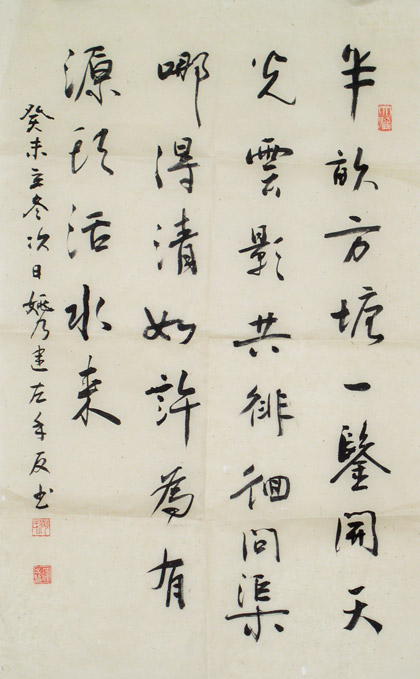 半畝方塘一鑒開天
光雲影共徘徊問渠
哪得清如許為有
源頭活水来
癸未立冬次日姚乃建左手反书